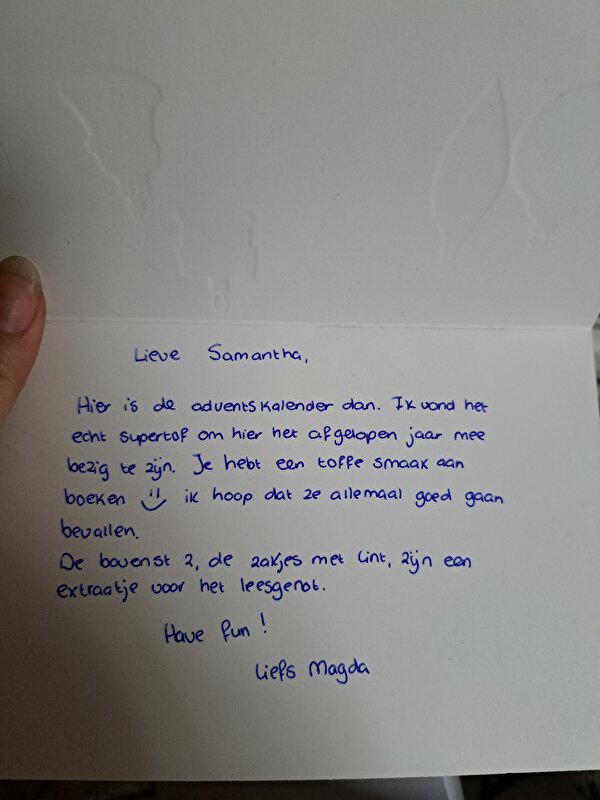 Lieve Samantha,
Hier is de adventskalender dan. Ik vond het
echt supertof om hier het afgelopen jaar mee
bezig te zijn. Je hebt een toffe smaak aan
boeken ik hoop dat ze allemaal goed gaan
bevallen.
De bovenst 2, de zakjes met lint, zijn een
extraatje voor het leesgenot.
Have fun!
Liefs Magda